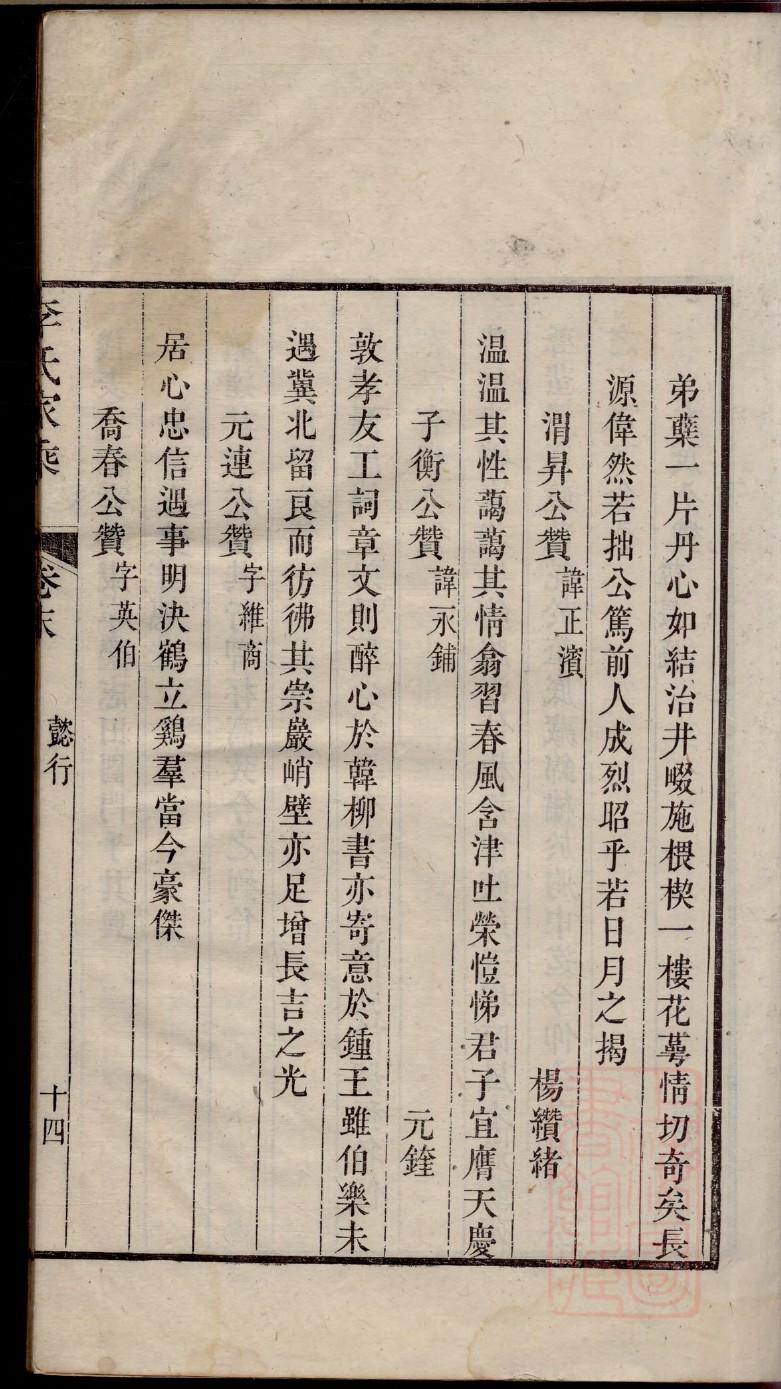 弟蘗一片丹心如結治井畷施椳楔一樓花萼情切奇矣長
源偉然若拙公篤前人成烈昭乎若日月之揭
渭昇公贊 諱正濱 楊纘緒
温温其性藹藹其情翕習春風含津吐榮愷悌君子宜膺天慶
子衡公贊 諱永鋪 元鍷
敦孝友工詞章文則醉心於韓柳書亦寄意於鍾王雖伯樂未
遇冀北留良而彷彿其崇嚴峭壁亦足增長吉之光
元連公贊 字維商
居心忠信遇事明決鶴立鷄羣當今豪傑
喬春公贊 字英伯
李氏家乘 卷末 懿行 十四